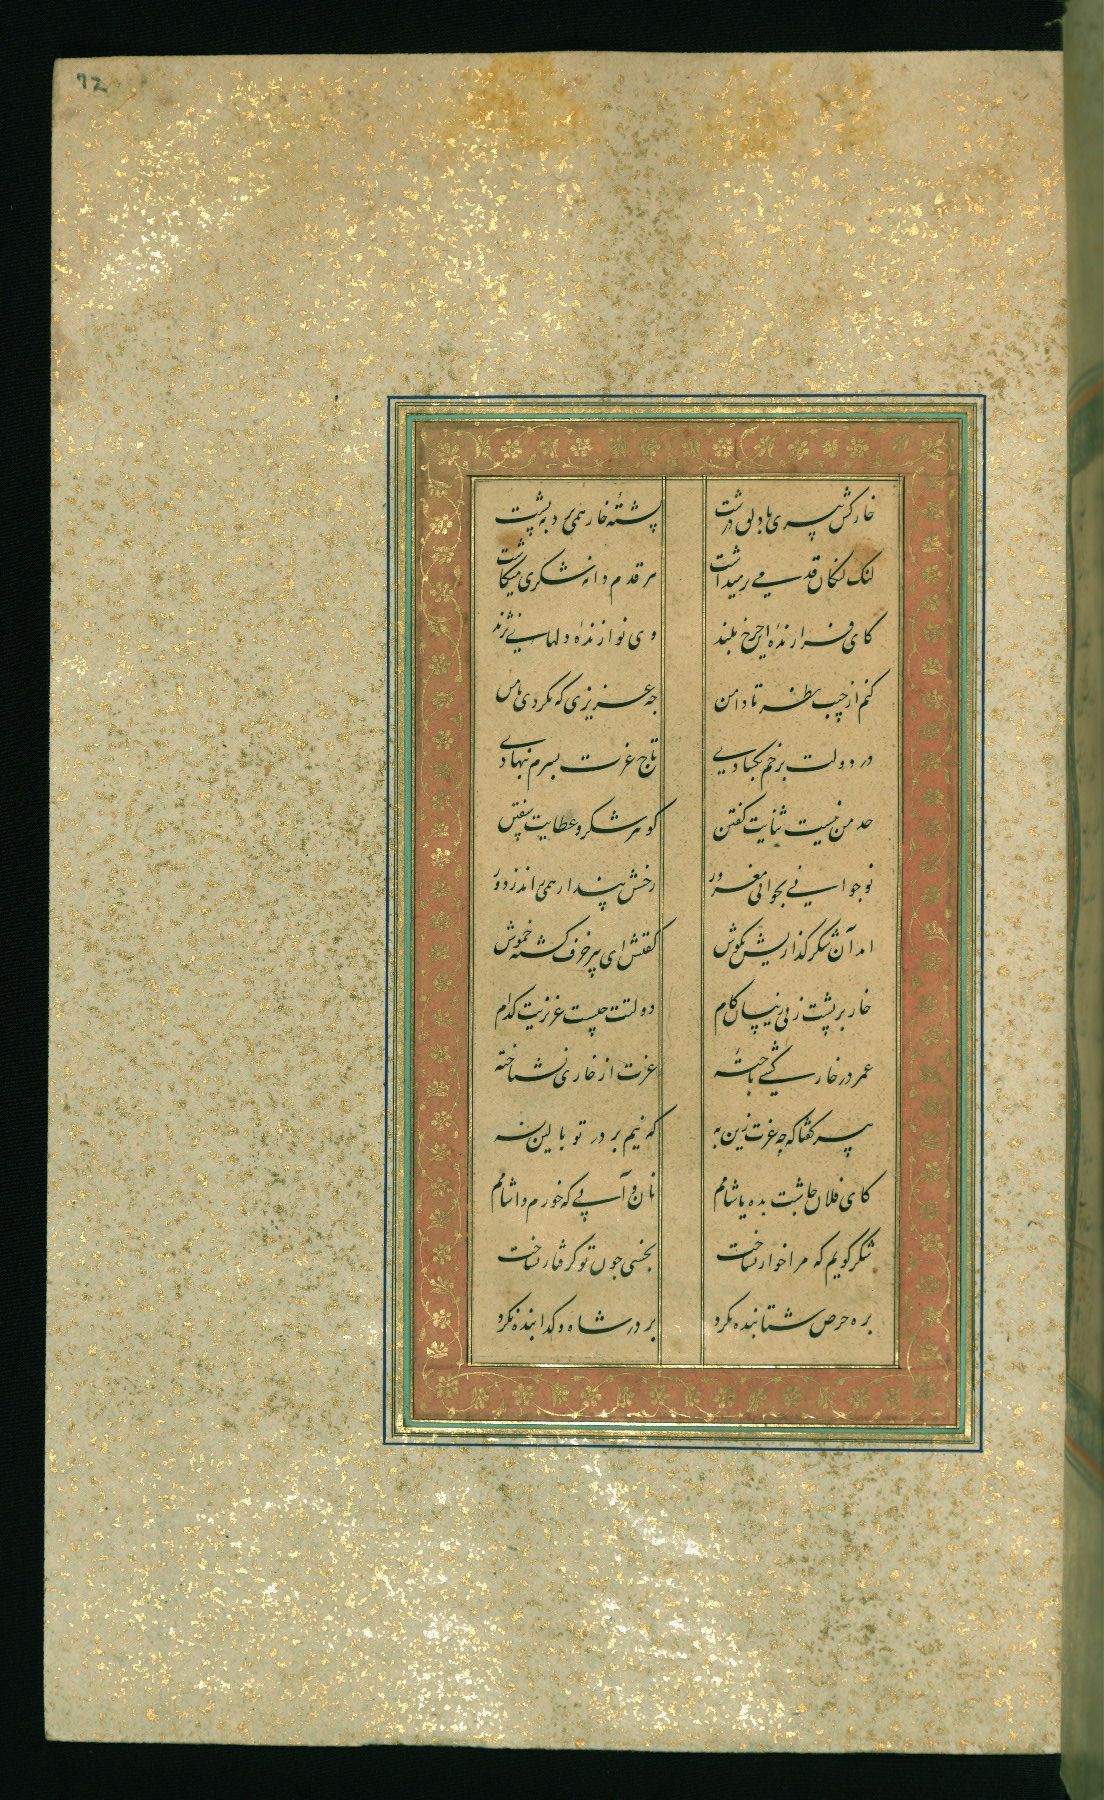 72
خارکش پیری با دلق درشت پشتهٔ خار همی برد به پشت
لنک لنکان قدمی برمیداشت هر قدم دانه شکری میکاشت
کای فرازندهٔ این چرخ بلند وی نوازندهٔ دلهای نژند
کنم از جیب نظر تا دامن چه عزیزی که نکردی با من
در دولت برخم بکشادی تاج عزت بسرم بنهادی
حد من نیست ثنایت کفتن کوهر شکر و عطایت سفتن
نوجوانی بجوانی مغرور رخش پندار همی راند ز دور
امد آن شکر کذاریش بکوش کفتش ای پیر خرف کشته خموش
خار بر پشت زنی زینسان کام دولتت چیست عزیزیت کدام
عمر در خارکشی باختهٔ عزت از خاری نشناخته
پیر کفتا که چه عزت زین به که نیم بر در تو بالین نه
کای فلان چاشت بده یا شامم نان و آبی که خورم و اشامم
شکر کویم که مرا خوار نساخت بخسی چون تو کرفتار نساخت
بره حرص شتابنده نکرد بر در شاه و کدا بنده نکرد